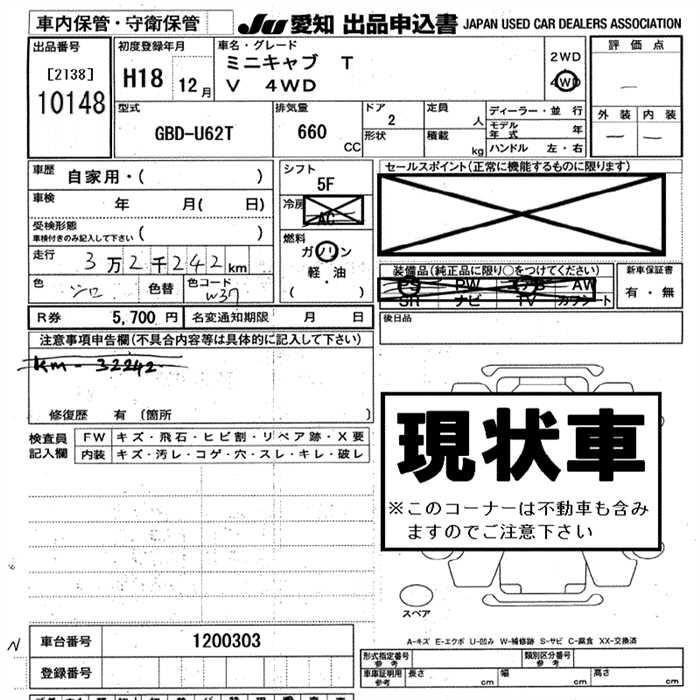 車内保管・守衛保管
JU 愛知 出品申込書 JAPAN USED CAR DEALERS ASSOCIATION
出品番号
[2138]
10148
初度登録年月
H18 12月
車名・グレード
ミニキャブ T
V 4WD
2WD
4WD
評価点
外装 内装
型式
GBD-U62T
排気量
660 CC
ドア
2
形状
定員 人
積載 kg
ディーラー・並行
モデル年式 年
ハンドル 左・右
車歴 自家用・( )
車検 年 月( 日)
受検形態
車検付きのみ記入して下さい ( )
走行 3万2千242km
色 シロ 色替 色コード W37
シフト
5F
冷房
AC
燃料
ガソリン
軽・油
( )
セールスポイント(正常に機能するものに限ります)
装備品(純正品に限り○をつけてください)
PS PW エアB AW
SR ナビ TV カワシート
新車保証書
有・無
R券 5,700円 名変通知期限 月 日
後日品
注意事項申告欄(不具合内容等は具体的に記入して下さい)
km-32242
修復歴 有(箇所 )
検査員記入欄
FW キズ・飛石・ヒビ割・リペア跡・X要
内装 キズ・汚レ・コゲ・穴・スレ・キレ・破レ
現状車
※このコーナーは不動車も含み
ますのでご注意下さい
スペア
A-キズ E-エクボ U-凹み W-補修跡 S-サビ C-腐食 XX-交換済
N
車台番号 1200303
登録番号
形式指定番号 参考
類別区分番号 参考
車庫証明用 参考 長さ cm 幅 cm 高さ cm